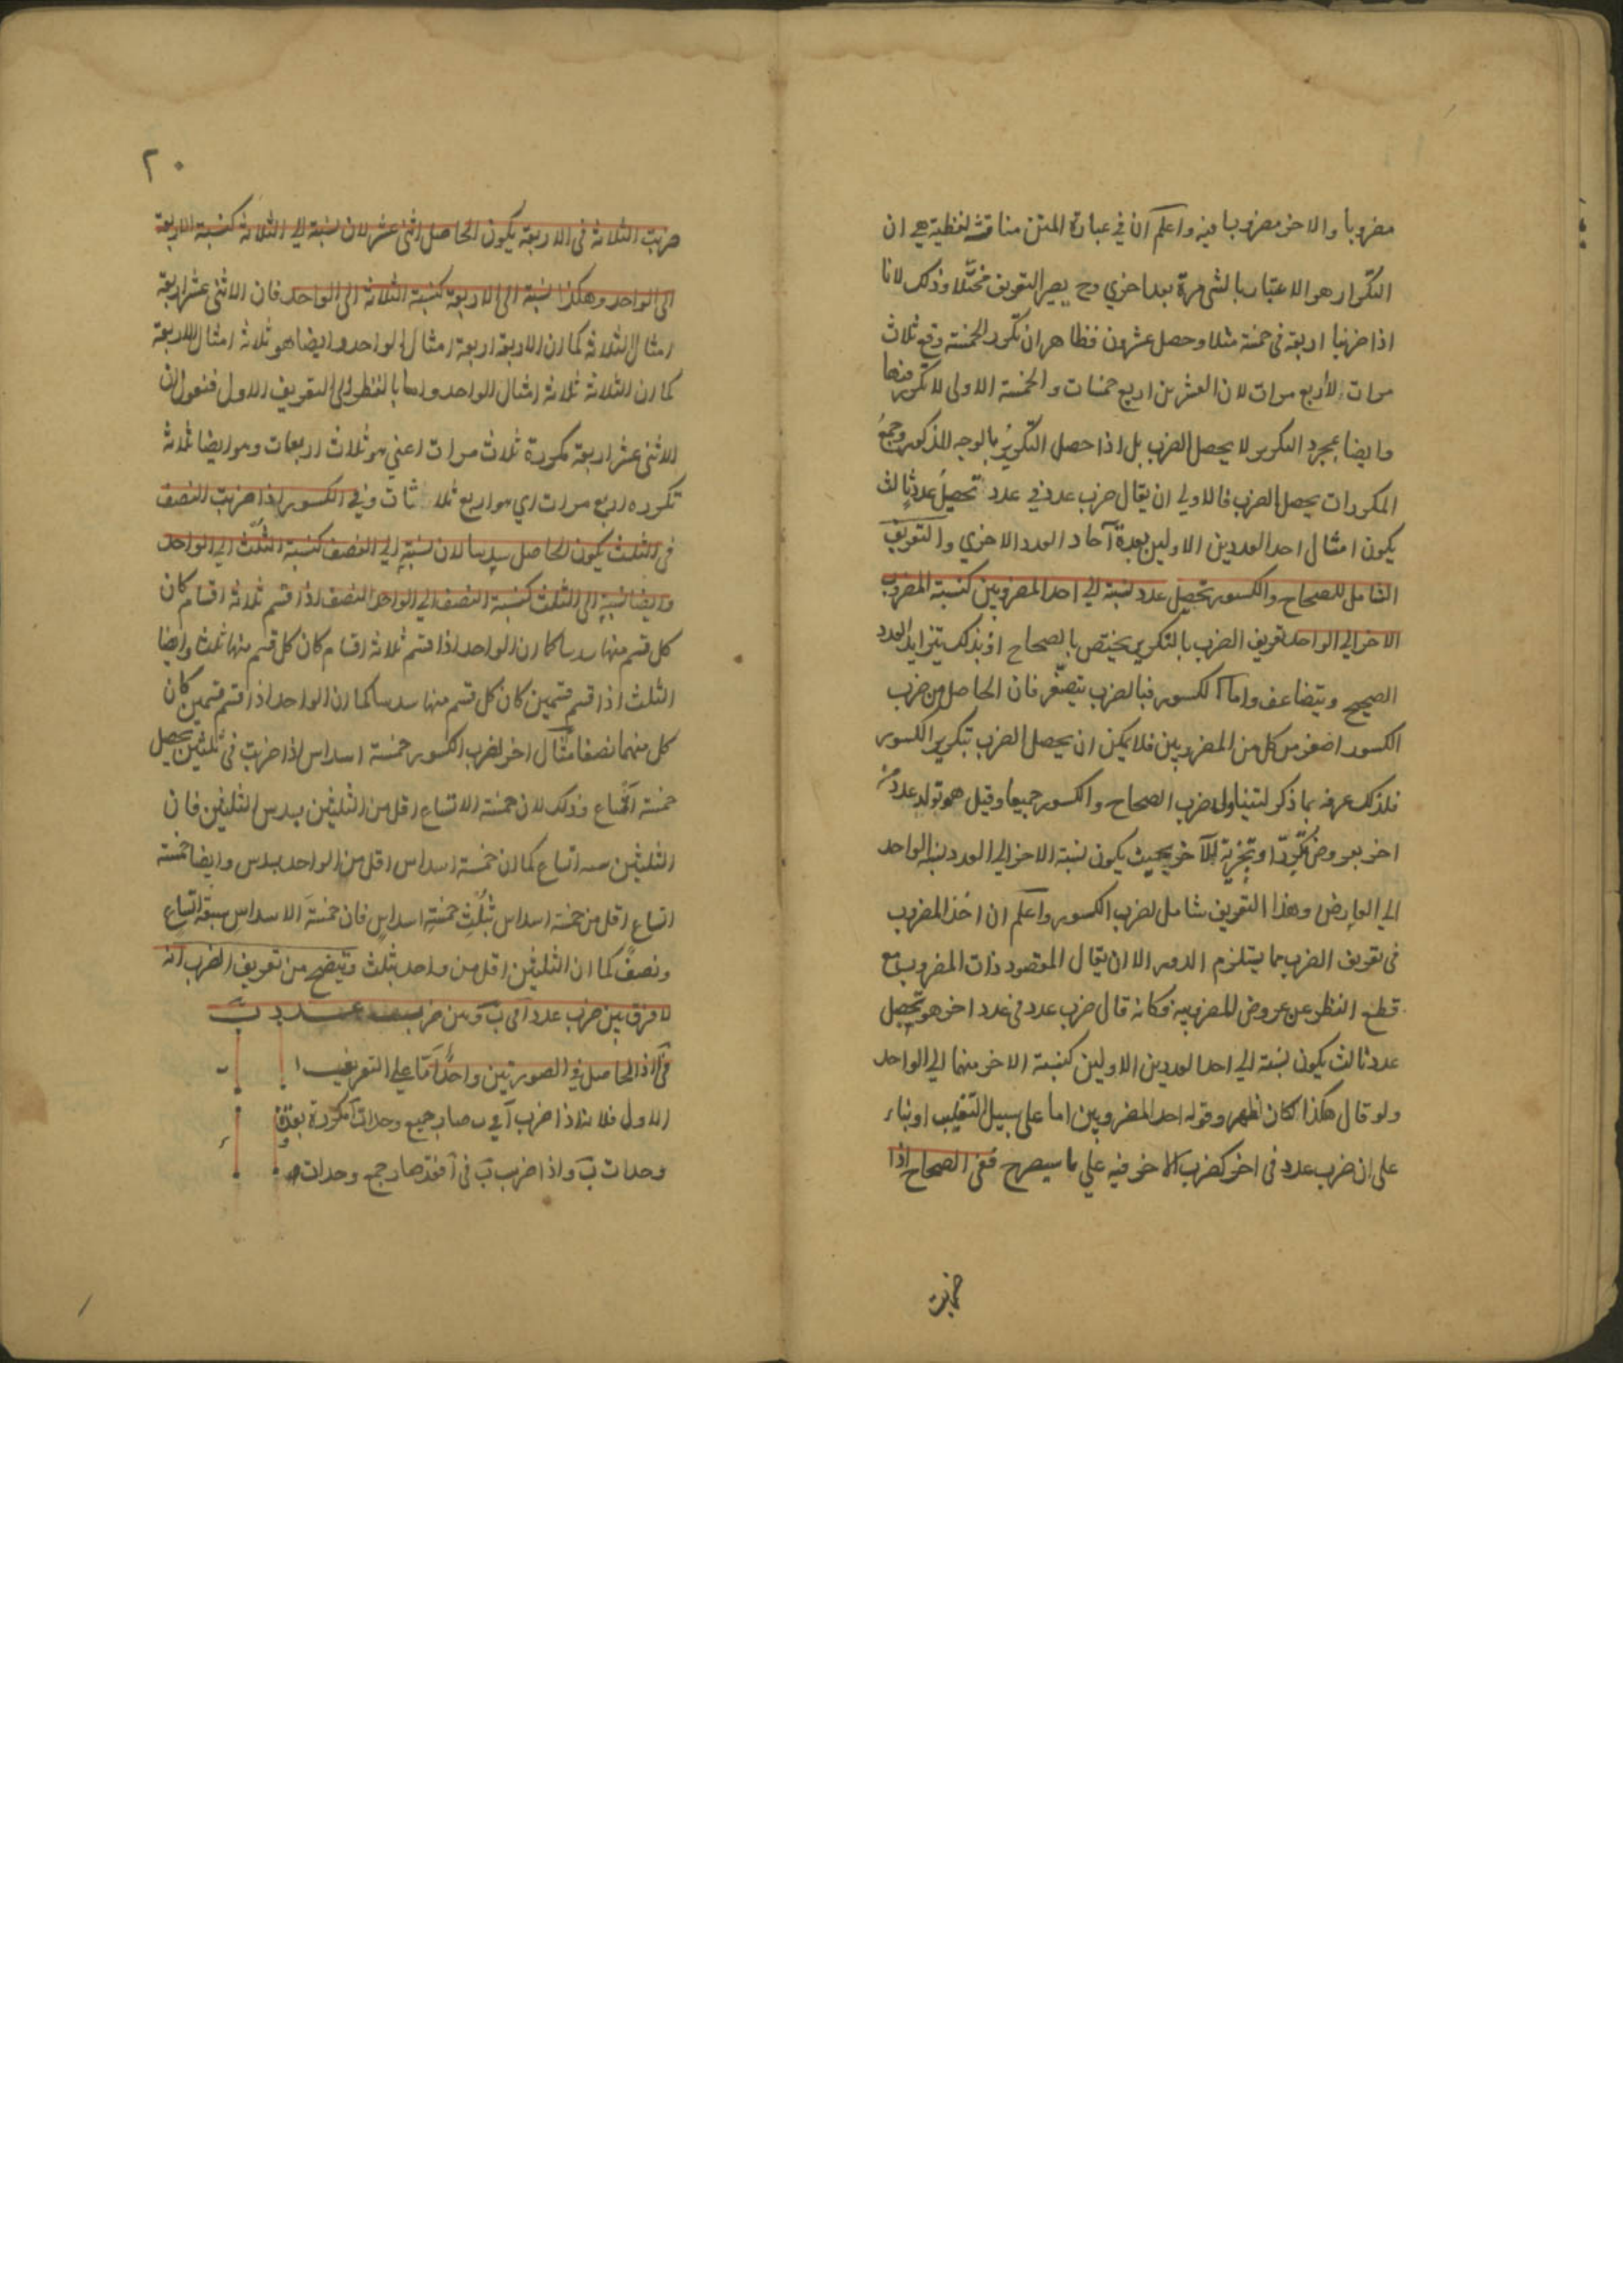 مضروبا والاخر مضروبا فيه واعلم ان في عبارة المتن مناقشة لفظية هي ان
التكرار هو الاعتبار بالشي مرة بعد اخري وح يصير التعريف مختلا وذلك لانا
اذا ضربنا اربعة في خمسة مثلا وحصل عشرون فظاهر ان تكرر الخمسة وقع ثلاث
مرات لا اربع مرات لان العشرين اربع خمسات والخمسة الاولى لا تكرير فيها
وايضا بمجرد التكرير لا يحصل الضرب بل اذا حصل التكرير بالوجه المذكور وجمع
المكررات يحصل الضرب فالاولي ان يقال ضرب عدد في عدد تحصيل عدد ثالث
يكون امثال احد العددين الاولين بعدة آحاد العدد الاخري والتعريف
الشامل للصحاح والكسور تحصيل عدد نسبة الي احد المضروبين كنسبة المضروب
الاخر الي الواحد تعريف الضرب بالتكرير يختص بالصحاح اذ بذلك يتزايد العدد
الصحيح ويتضاعف واما الكسور فبالضرب يتصغر فان الحاصل من ضرب
الكسور اصغر من كل من المضروبين فلا يمكن ان يحصل الضرب بتكرير الكسور
فلذلك عرفه بما ذكر لتيناول ضرب الصحاح والكسور جميعا وقيل هو تولد عدد من
اخر بعروض تكرر او تجزية للآخر بحيث يكون نسبة الاخر الي العدد نسبة الواحد
الي العارض وهذا التعريف شامل لضرب الكسور واعلم ان اخذ المضروب
في تعريف الضرب مما يستلزم الدور الا ان يقال المقصود ذات المضروب مع
قطع النظر عن عروض المضروبية فكانه قال ضرب عدد في عدد اخر هو تحصيل
عدد ثالث يكون نسبة الي احد العددين الاولين كنسبة الاخر منهما الي الواحد
ولو قال هكذا لكان اظهر وقوله احد المضروبين اما على سبيل التغليب او بناء
على ان ضرب عدد في اخر كضرب الاخر فيه علي ما سيصرح ففي الصحاح اذا
ضربت
٢٠
ضربت الثلاثة في الاربعة يكون الحاصل اثني عشر لان نسبة الي الثلاثة كنسبة الاربعة
الى الواحد وهكذا نسبة الى الاربعة كنسبة الثلاثة الى الواحد فان الاثني عشر اربعة
امثال الثلاثة كما ان الاربعة اربعة امثال الواحد وايضا هو ثلاثة امثال الاربعة
كما ان الثلاثة ثلاثة امثال الواحد واما بالنظر الى التعريف الاول فنقول ان
الاثني عشر اربعة مكررة ثلاث مرات اعني هو ثلاث اربعات وهو ايضا ثلاثة
تكرره اربع مرات اي هو اربع ثلاثات وفي الكسور اذا ضربت النصف
في الثلث يكون الحاصل سدسا لان نسبة الي النصف كنسبة الثلث الي الواحد
وايضا نسبة الى الثلث كنسبة النصف الي الواحد النصف اذا قسم ثلاثة اقسام كان
كل قسم منها سدسا كما ان الواحد اذا قسم ثلاثة اقسام كان كل قسم منها ثلثا وايضا
الثلث اذا قسم قسمين كان كل قسم منها سدسا كما ان الواحد اذا قسم قسمين كان
كل منهما نصفا مثال اخر لضرب الكسور خمسة اسداس اذا ضربت في ثلثين يحصل
خمسة اتساع وذلك لان خمسة الاتساع اقل من الثلثين بسدس الثلثين فان
الثلثين سه اتساع كما ان خمسة اسداس اقل من الواحد بسدس وايضا خمسة
اتساع اقل من خمسة اسداس بثلث خمسة اسداس فان خمسة الاسداس سبعة اتساع
ونصف كما ان الثلثين اقل من واحد بثلث ويتضح من تعريف الضرب انه
لا فرق بين ضرب عدد آ في ب وبين ضرب عدد ب
في آ اذ الحاصل في الصورتين واحد اما علي التعريف
الاول فلانه اذا ضرب آ في ب صار جميع وحدات آ مكررة بعدة
وحدات ب واذا ضرب ب في آ فقد صار جميع وحدات